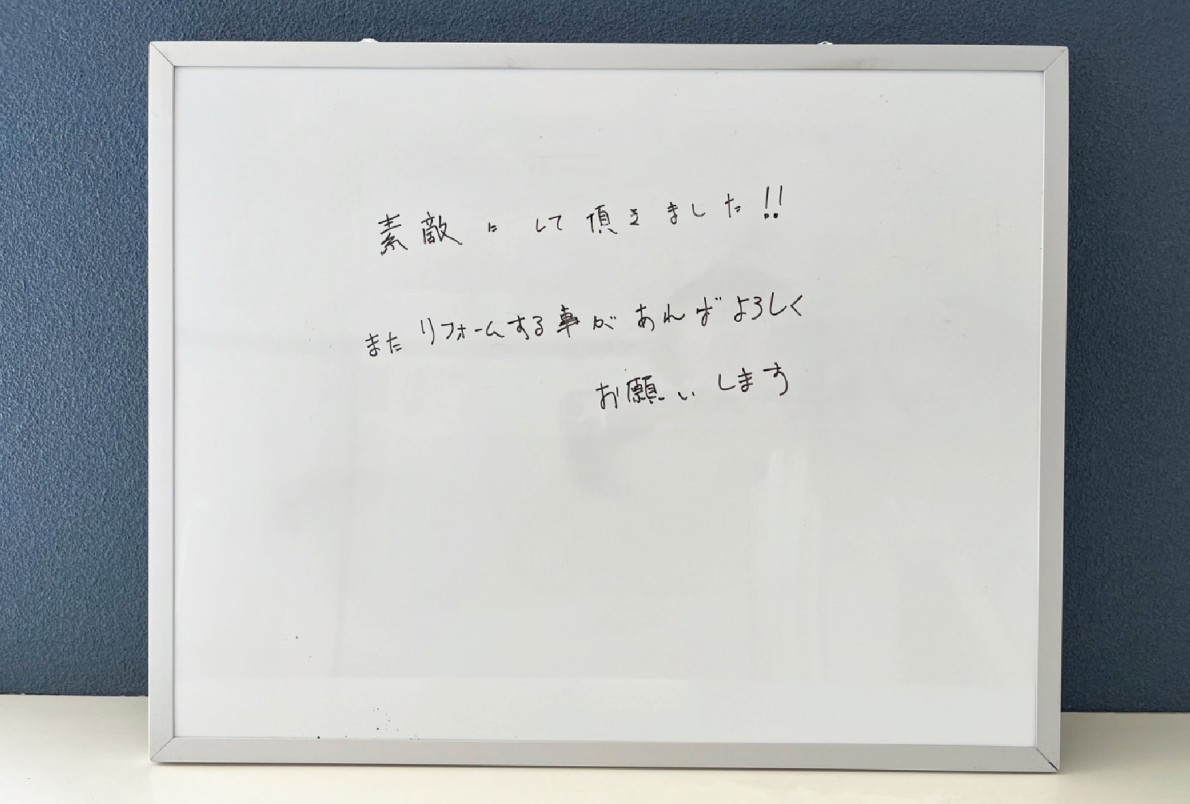 素敵にして頂きました!!
またリフォームする事があればよろしく
お願いします